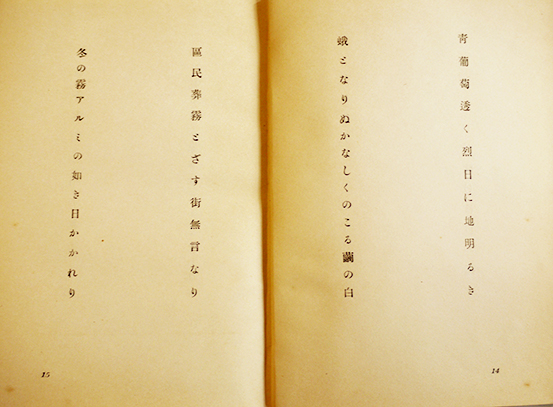 青葡萄透く烈日に地明るき
蛾となりぬかなしくのこる繭の白
14
區民葬霧とざす街無言なり
冬の霧アルミの如き日かかれり
15